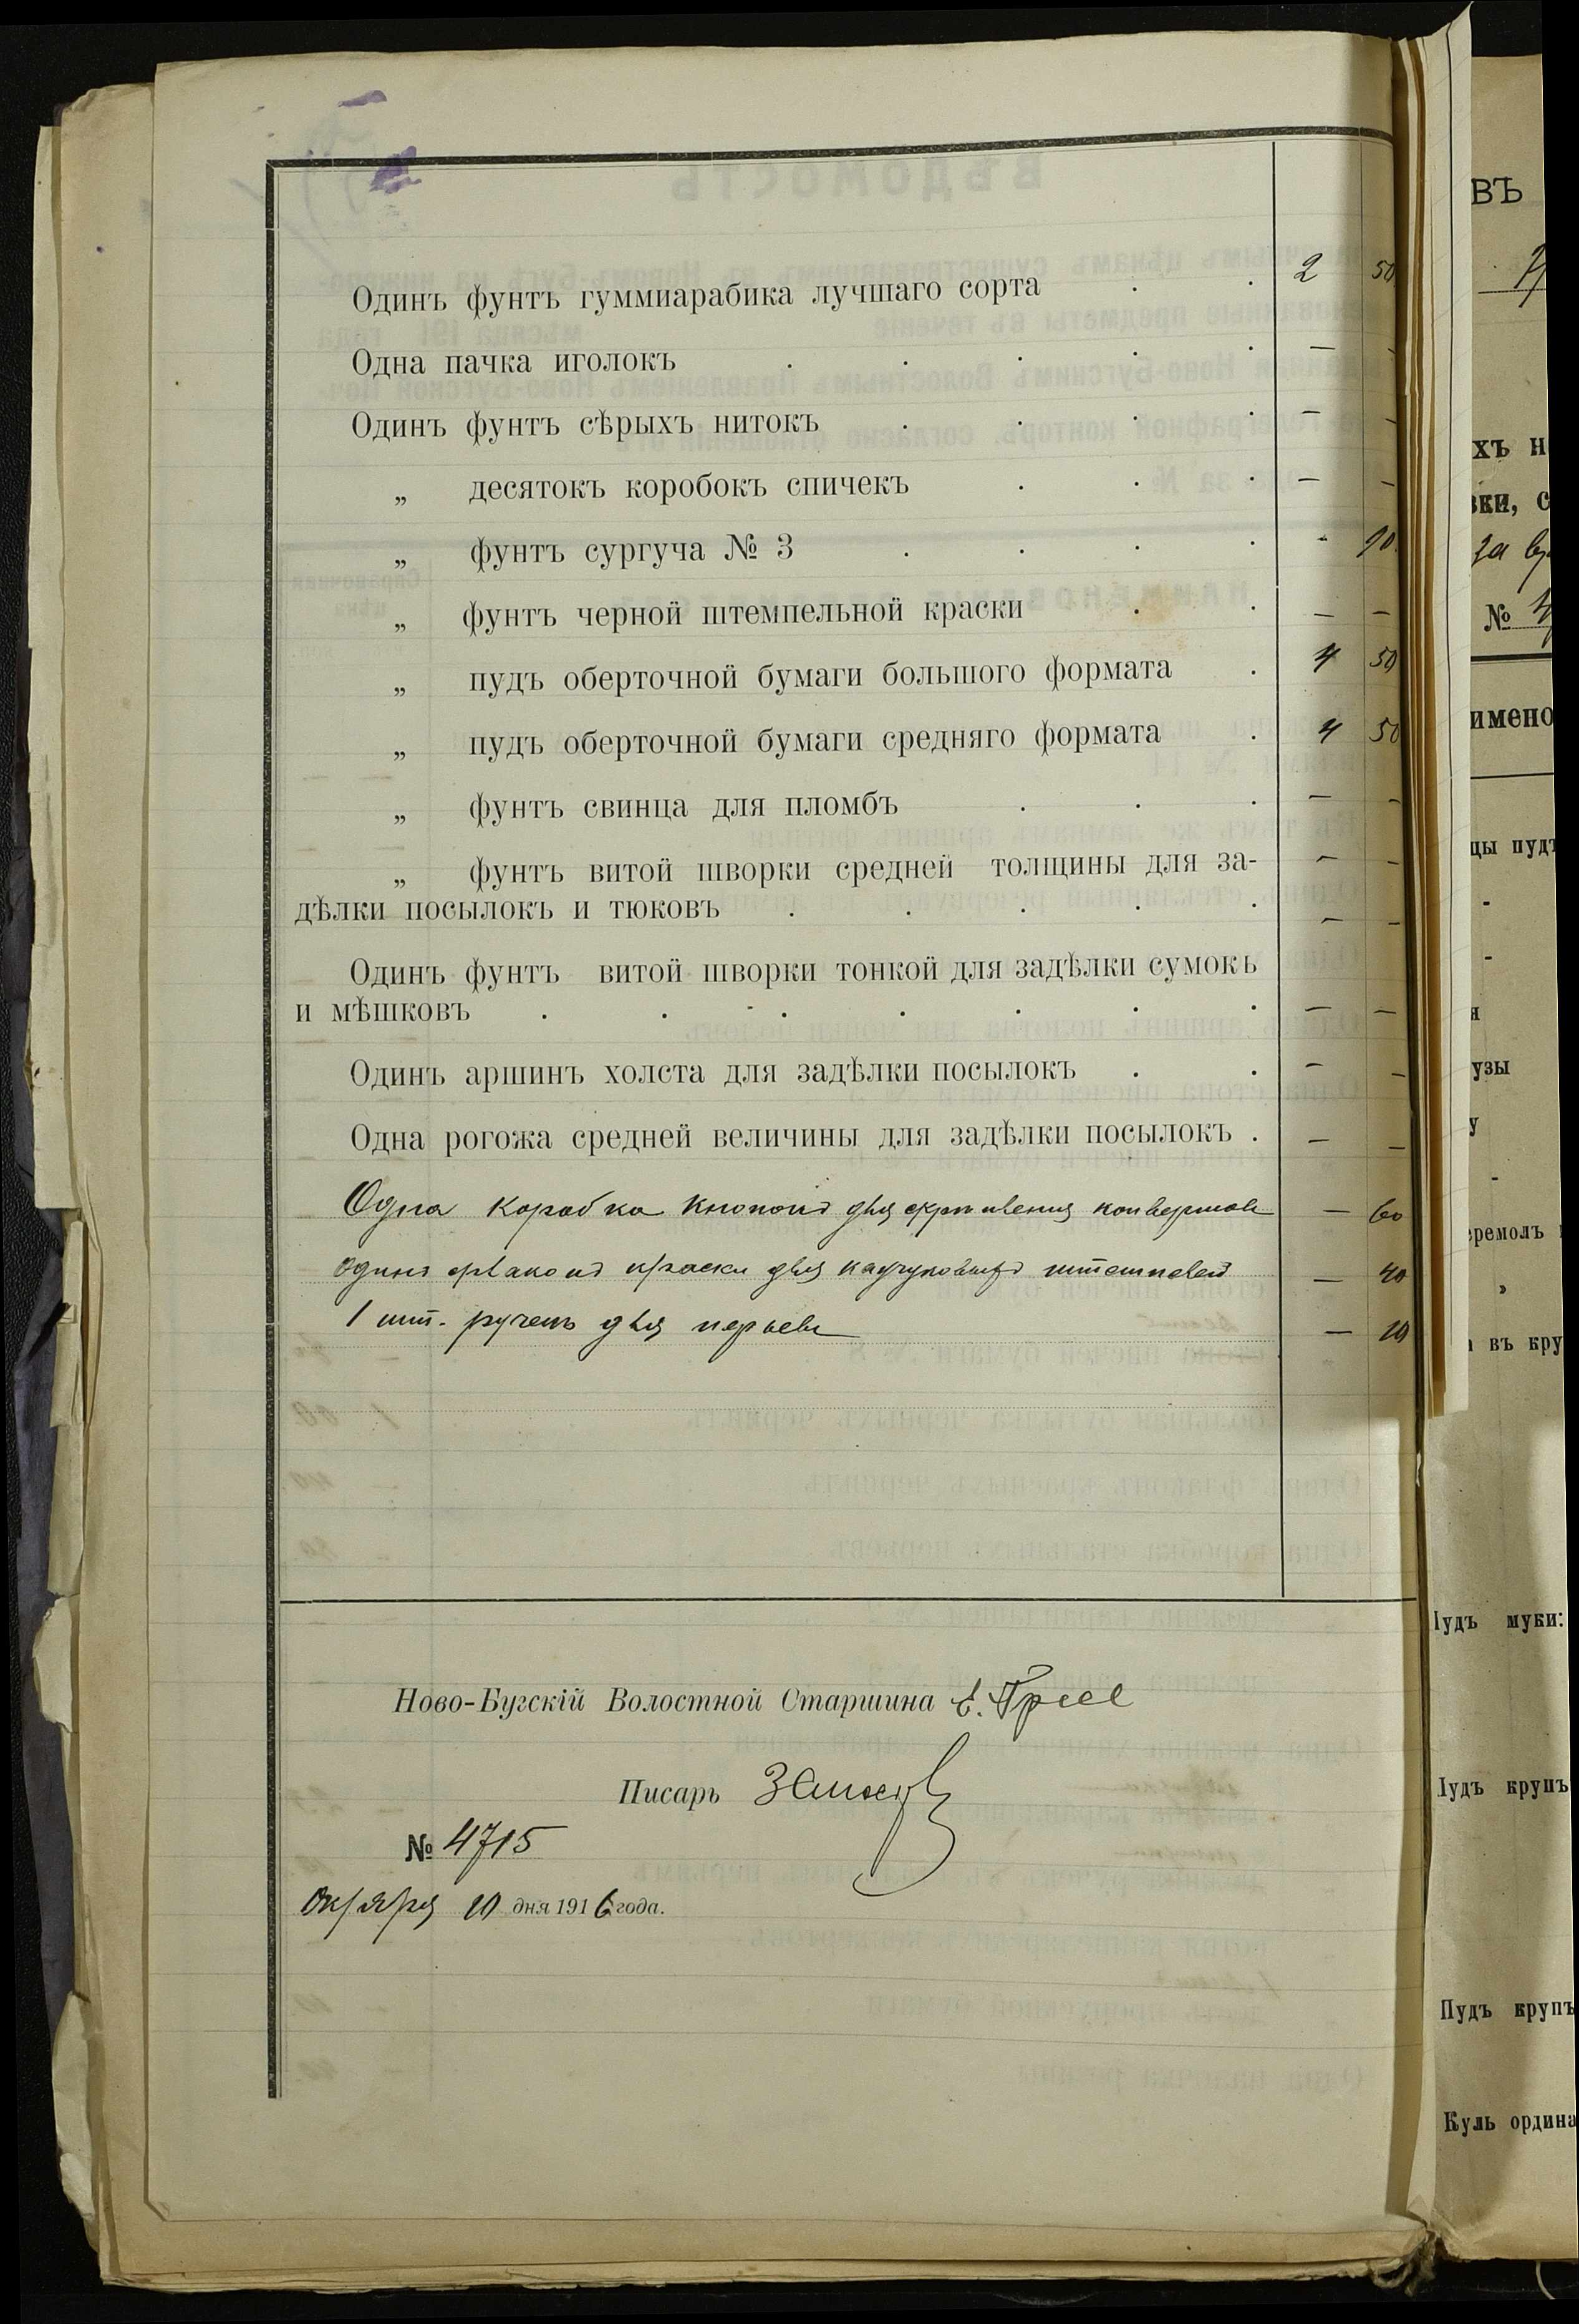 Одинъ фунтъ гуммиарабика лучшаго сорта . . 2 50
Одна пачка иголокъ . . . . . — -
Одинъ фунтъ сѣрыхъ нитокъ . . . . — -
„ десятокъ коробокъ спичекъ . . . — -
„ фунтъ сургуча № 3 . . . . -
„ фунтъ черной штемпельной краски . . — —
„ пудъ оберточной бумаги большого формата . 4 50
„ пудъ оберточной бумаги средняго формата . 4 50
„ фунтъ свинца для пломбъ . . . — -
„ фунтъ витой шворки средней толщины для за- — -
дѣлки посылокъ и тюковъ . . . . . — -
Одинъ фунтъ витой шворки тонкой для задѣлки сумокъ
и мѣшковъ . . . . . . . — —
Одинъ аршинъ холста для задѣлки посылокъ . . — -
Одна рогожа средней величины для задѣлки посылокъ . — -
Одна коробка кнопокъ для скрѣпленія конвертовъ — 60
Одинъ флаконъ краски для каучуковыхъ штемпелей — 40
1 шт. ручекъ для перьевъ — 10
Ново-Бугскій Волостной Старшина
Писарь
№ 4715
Октября 10 дня 1916 года.
ВЪ
хъ н
вки, с
за
№ 4
имено
цы пудъ
-
-
я
узы
у
-
еремолъ
„
въ кру
Пудъ муки:
Пудъ крупъ
Пудъ крупъ
Куль ордина